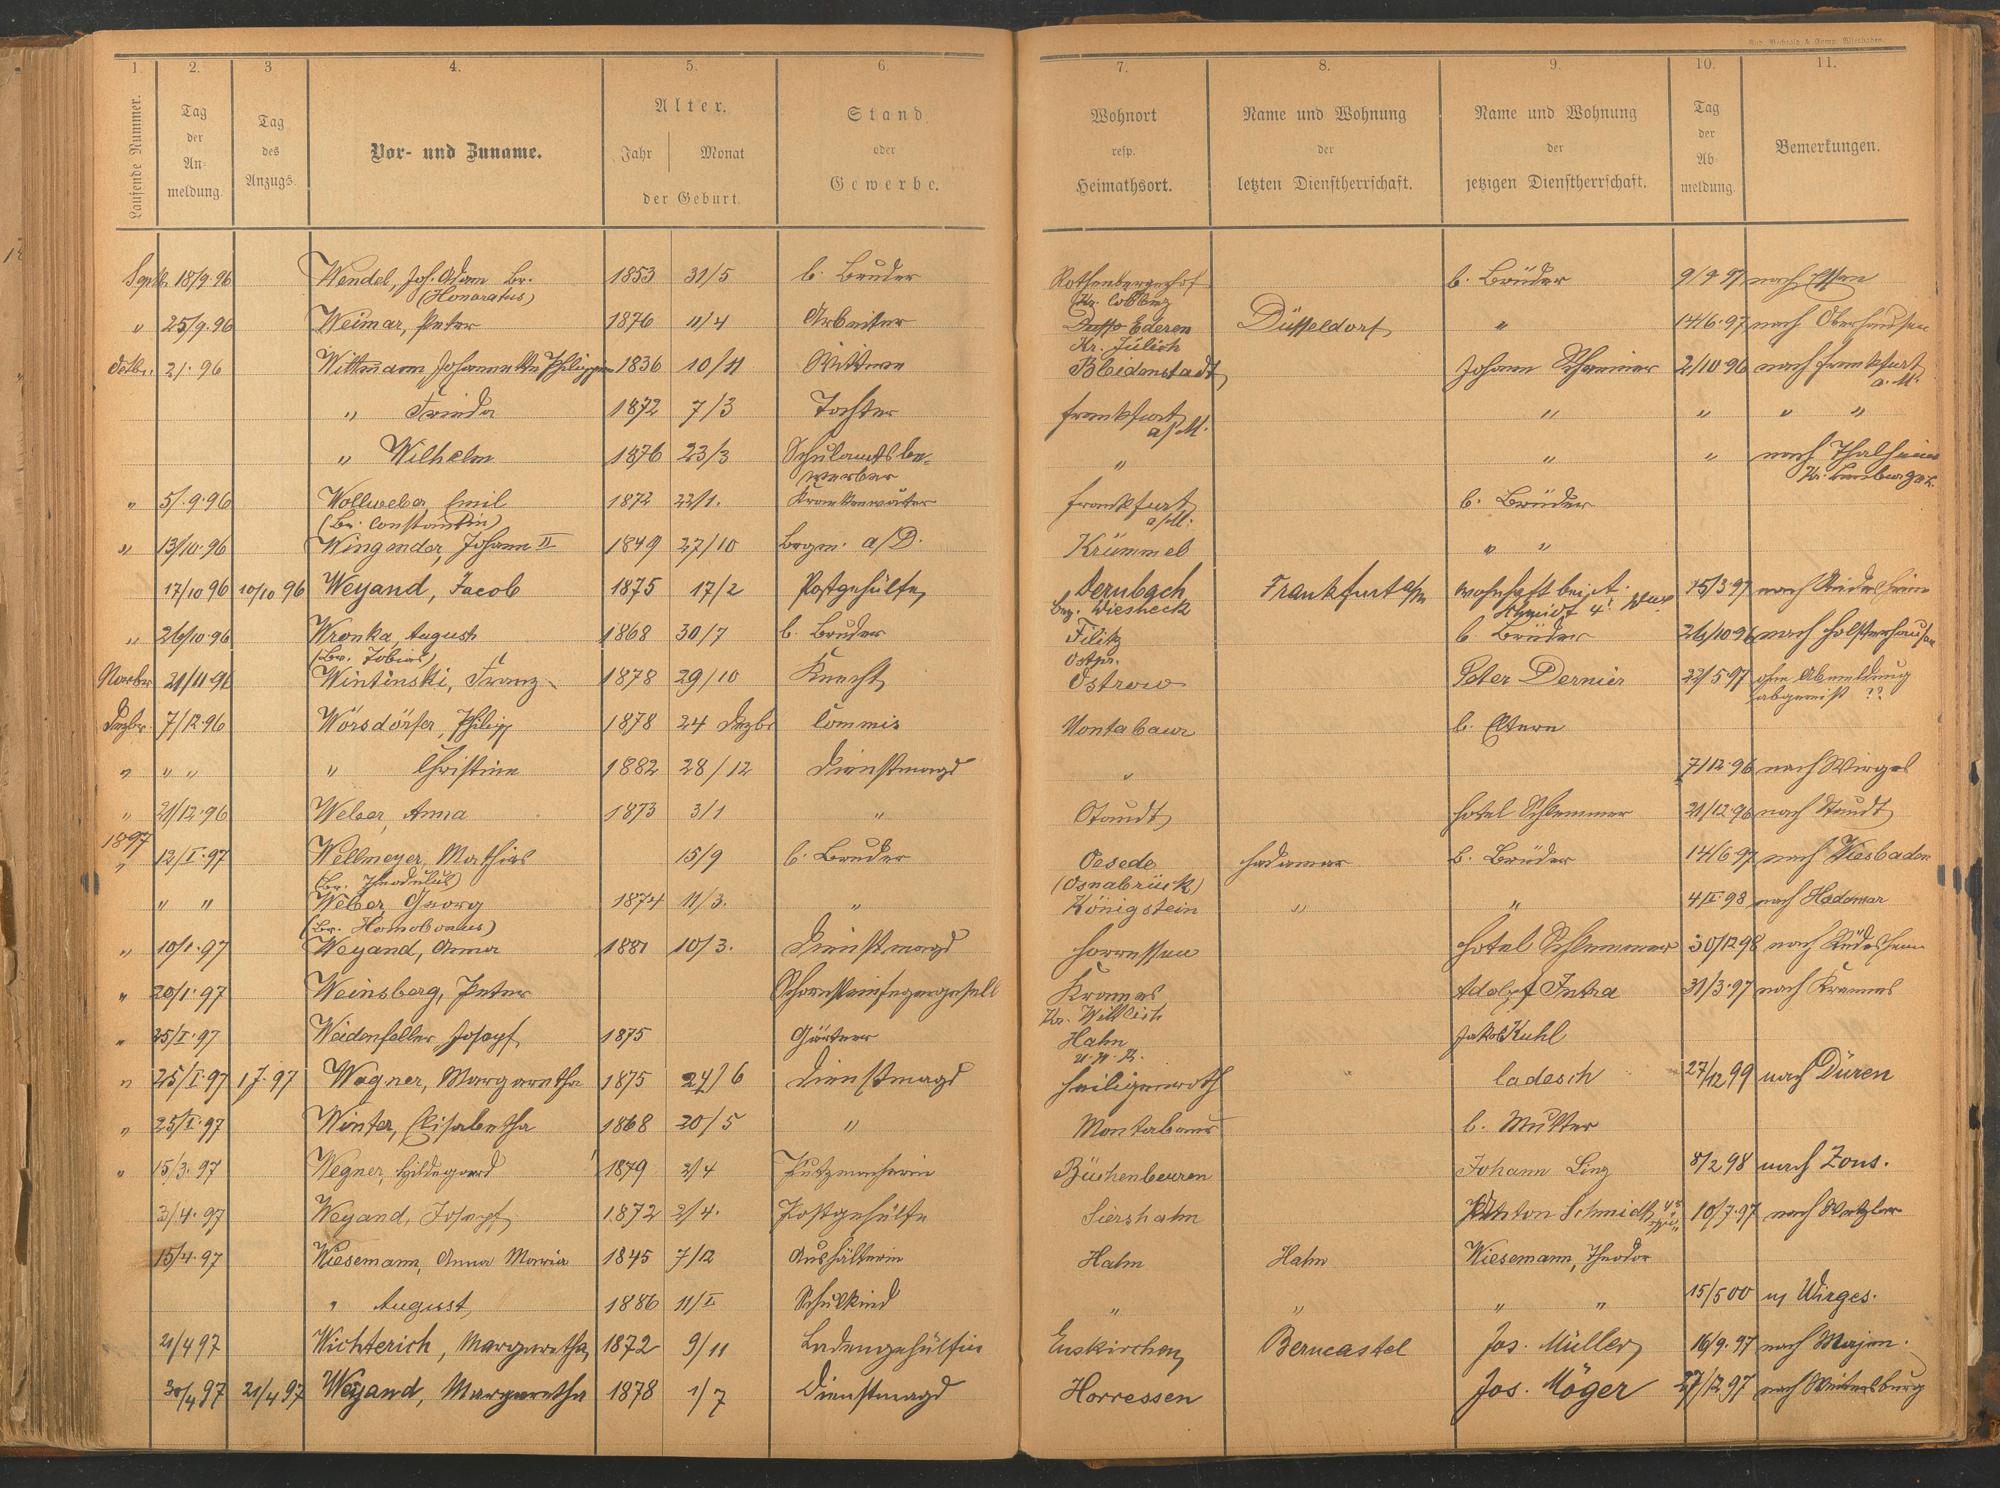 1. 2. 3 4. 5. 6. 7. 8. 9. 10. 11.
Laufende Nummer.
Tag der An-meldung.
Tag des Anzugs.
Vor- und Zuname.
Alter.
Jahr Monat
der Geburt.
Stand oder Gewerbe.
Wohnort resp. Heimathsort.
Name und Wohnung der letzten Dienstherrschaft.
Name und Wohnung der jetzigen Dienstherrschaft.
Tag der Ab-meldung.
Bemerkungen.
18/9.96 Wendel, Jos. Adam Br. 1853 31/5 b. Bruder b. Brüder 9/4 97 nach Essen
(Honoratus) Kr. Coblenz
" 25/9.96 Weimar, Peter 1876 11/4 Arbeiter Ederen Düsseldorf " 14/6.97 nach Oberhausen
Kr. Jülich
Octbr. 2/. 96 Wittmann, Johannette Philippine 1836 10/11 Wittwe Bleidenstadt Johann 2/10 96 nach Frankfurt
a. M.
" Frieda 1872 7/3 Tochter Frankfurt " " " "
a/M.
" Wilhelm 1876 23/3 Schulamtsbe- " " " nach Thalheim
werber
" 5/.9.96 Wollweber, Emil 1872 22/1. Krankenwärter Frankfurt b. Brüder
(Br. Constantin) a/M.
" 13/10.96 Wingender, Johann II 1849 27/10 Brgm. a/D. Krümmel " "
17/10 96 10/10 96 Weyand, Jacob 1875 17/2 Postgehülfe Dernbach Frankfurt a/M wohnhaft bei A. 15/3 97 nach
Bez. Wiesbeck Schmidt 4
" 26/10.96 Wronka, August 1868 30/7 b. Bruder b. Brüder 26/10 96 nach Holsterhausen
(Br. Tobias) Ostpr.
Novbr 21/11 96 Wintinski, Franz 1878 29/10 Knecht Ostrow Peter Dernier 22/5 97 ohne Abmeldung
abgereist ??
Dezbr. 7/12 96 Wörsdörfer, Philipp 1878 24 Dezbr Commis Montabaur b. Eltern
" " " " Christine 1882 28/12 Dienstmagd " 7/12.96 nach Wirges
" 21/12.96 Weber, Anna 1873 3/1 " Staudt Hotel Schlemmer 21/12.96 nach Staudt
1897
" 12/I.97 Wellmeyer, Mathias 15/9 b. Bruder Oesede Hadamar b. Brüder 14/6.97 nach Wiesbaden
(Br. Theodulus) (Osnabrück)
" " Weber, Georg 1874 11/3. " Königstein " " nach Hadamar
" 10/1.97 Weyand, Anna 1881 10/3. Dienstmagd Horressen Hotel Schlemmer 30/12 98 nach Rüdesheim
" 20/1.97 Weinsberg, Peter Schornsteinfegergesell Krames Adolf Intra 31/3.97 nach Krames
Kr. Wittlich
" 25/I.97 Weidenfeller, Josef 1875 Gärtner Hahn Jakob Kuhl
" 25/I.97 Wagner, Margaretha 1875 24/6 Dienstmagd Heiligenroth Cadesch 27/12 99 nach Düren
" 25/I.97 Winter, Elisabetha 1868 20/5 " Montabaur b. Mutter
" 15/3.97 Wegner, Hildegard 1879 2/4 Putzmacherin Büchenbeuren Johann 8/2 98 nach Zons.
3/4.97 Weyand, Josef 1872 2/4. Postgehülfe Siershahn Anton Schmidt 10/7.97 nach Wetzlar
15/4.97 Wiesemann, Anna Maria 1845 7/12 Haushälterin Hahn Hahn Wiesemann, Theodor
" August 1886 11/I Schulkind " " " " 15/5 00 n. Wirges.
21/4 97 Wichterich, Margaretha 1872 9/11 Ladengehülfin Euskirchen Berncastel Jos. Müller 16/9.97 nach Mayen.
30/4 97 21/4 97 Weyand, Margaretha 1878 1/7 Dienstmagd Horressen Jos. Möger 27/12 97 nach Weitersburg